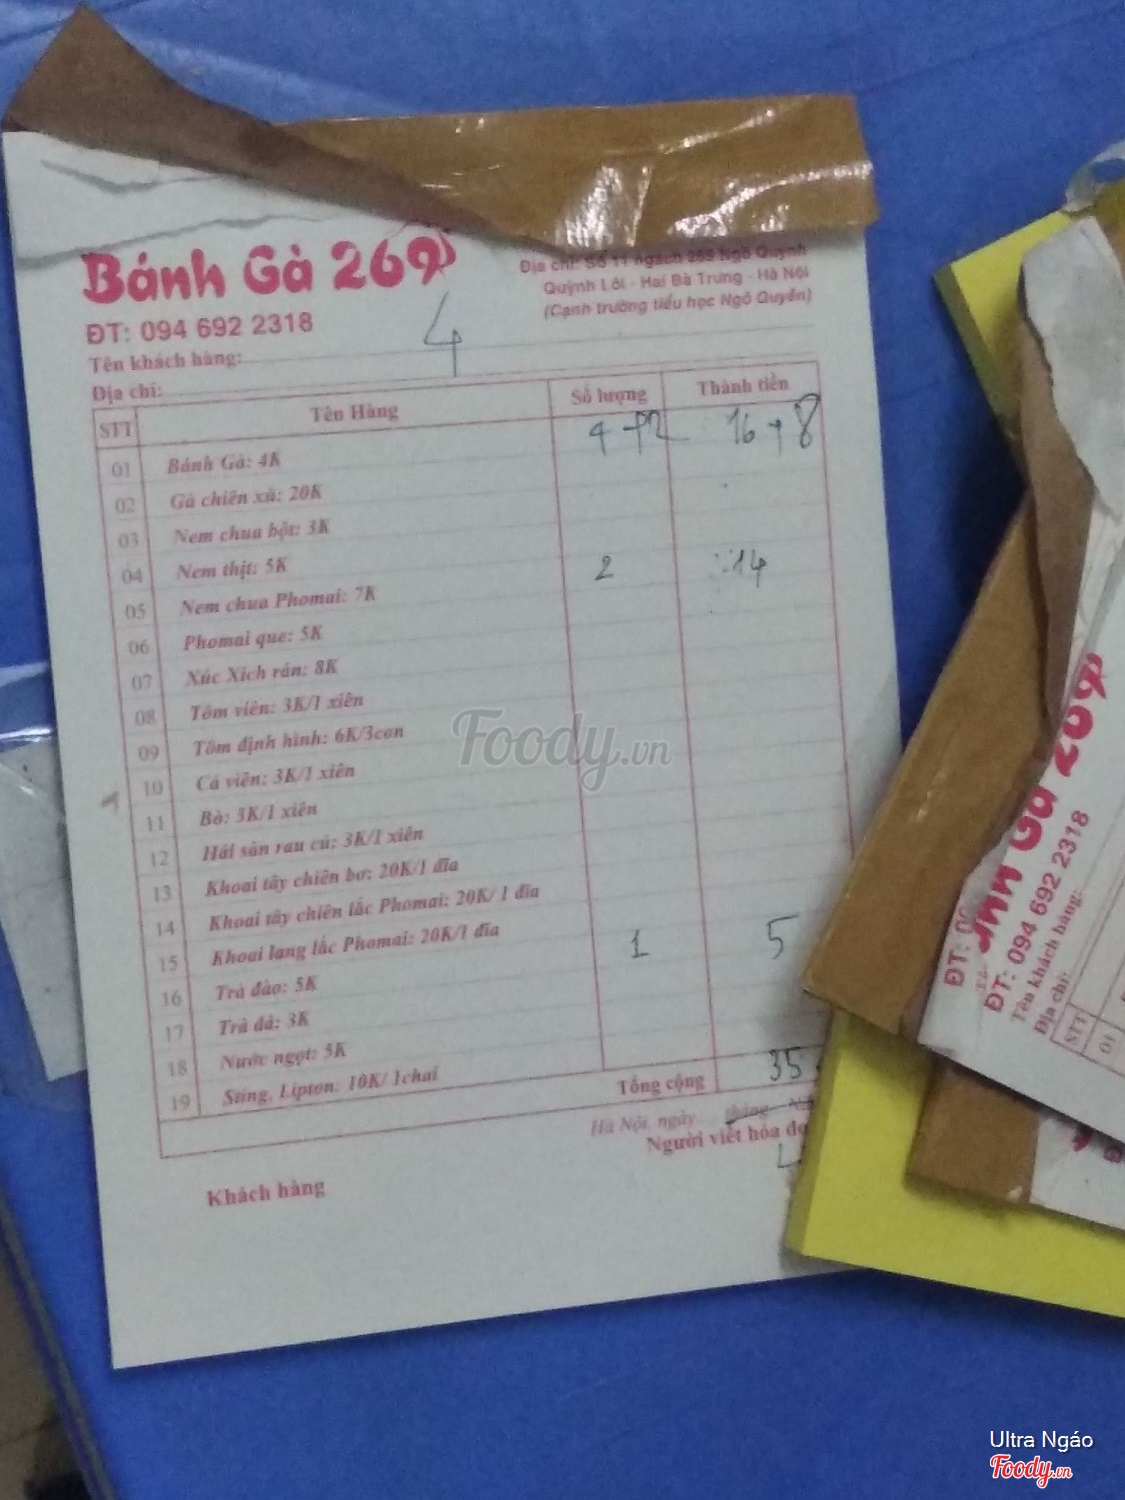 Bánh Gà 269
Địa chỉ: Số 11 ngách 269 Ngõ Quỳnh
Quỳnh Lôi - Hai Bà Trưng - Hà Nội
(Cạnh trường tiểu học Ngô Quyền)
ĐT: 094 692 2318
4
Tên khách hàng:
Địa chỉ:
STT Tên Hàng Số lượng Thành tiền
01 Bánh Gà: 4K 4 +2 16 + 8
02 Gà chiên xù: 20K
03 Nem chua bột: 3K
04 Nem thịt: 5K
05 Nem chua Phomai: 7K 2 14
06 Phomai que: 5K
07 Xúc Xích rán: 8K
08 Tôm viên: 3K/1 xiên
09 Tôm định hình: 6K/3con
10 Cá viên: 3K/1 xiên
11 Bò: 3K/1 xiên
12 Hải sản rau củ: 3K/1 xiên
13 Khoai tây chiên bơ: 20K/1 đĩa
14 Khoai tây chiên lắc Phomai: 20K/ 1 đĩa
15 Khoai lang lắc Phomai: 20K/1 đĩa
16 Trà đào: 5K 1 5
17 Trà đá: 3K
18 Nước ngọt: 5K
19 Sting, Lipton: 10K/ 1chai
Tổng cộng 35
Hà Nội, ngày tháng
Người viết hóa
Khách hàng
Foody.vn
Gà 269
ĐT: 094 692 2318
Tên khách hàng:
Địa chỉ:
STT
01
ĐT:
Ultra Ngáo
Foody.vn